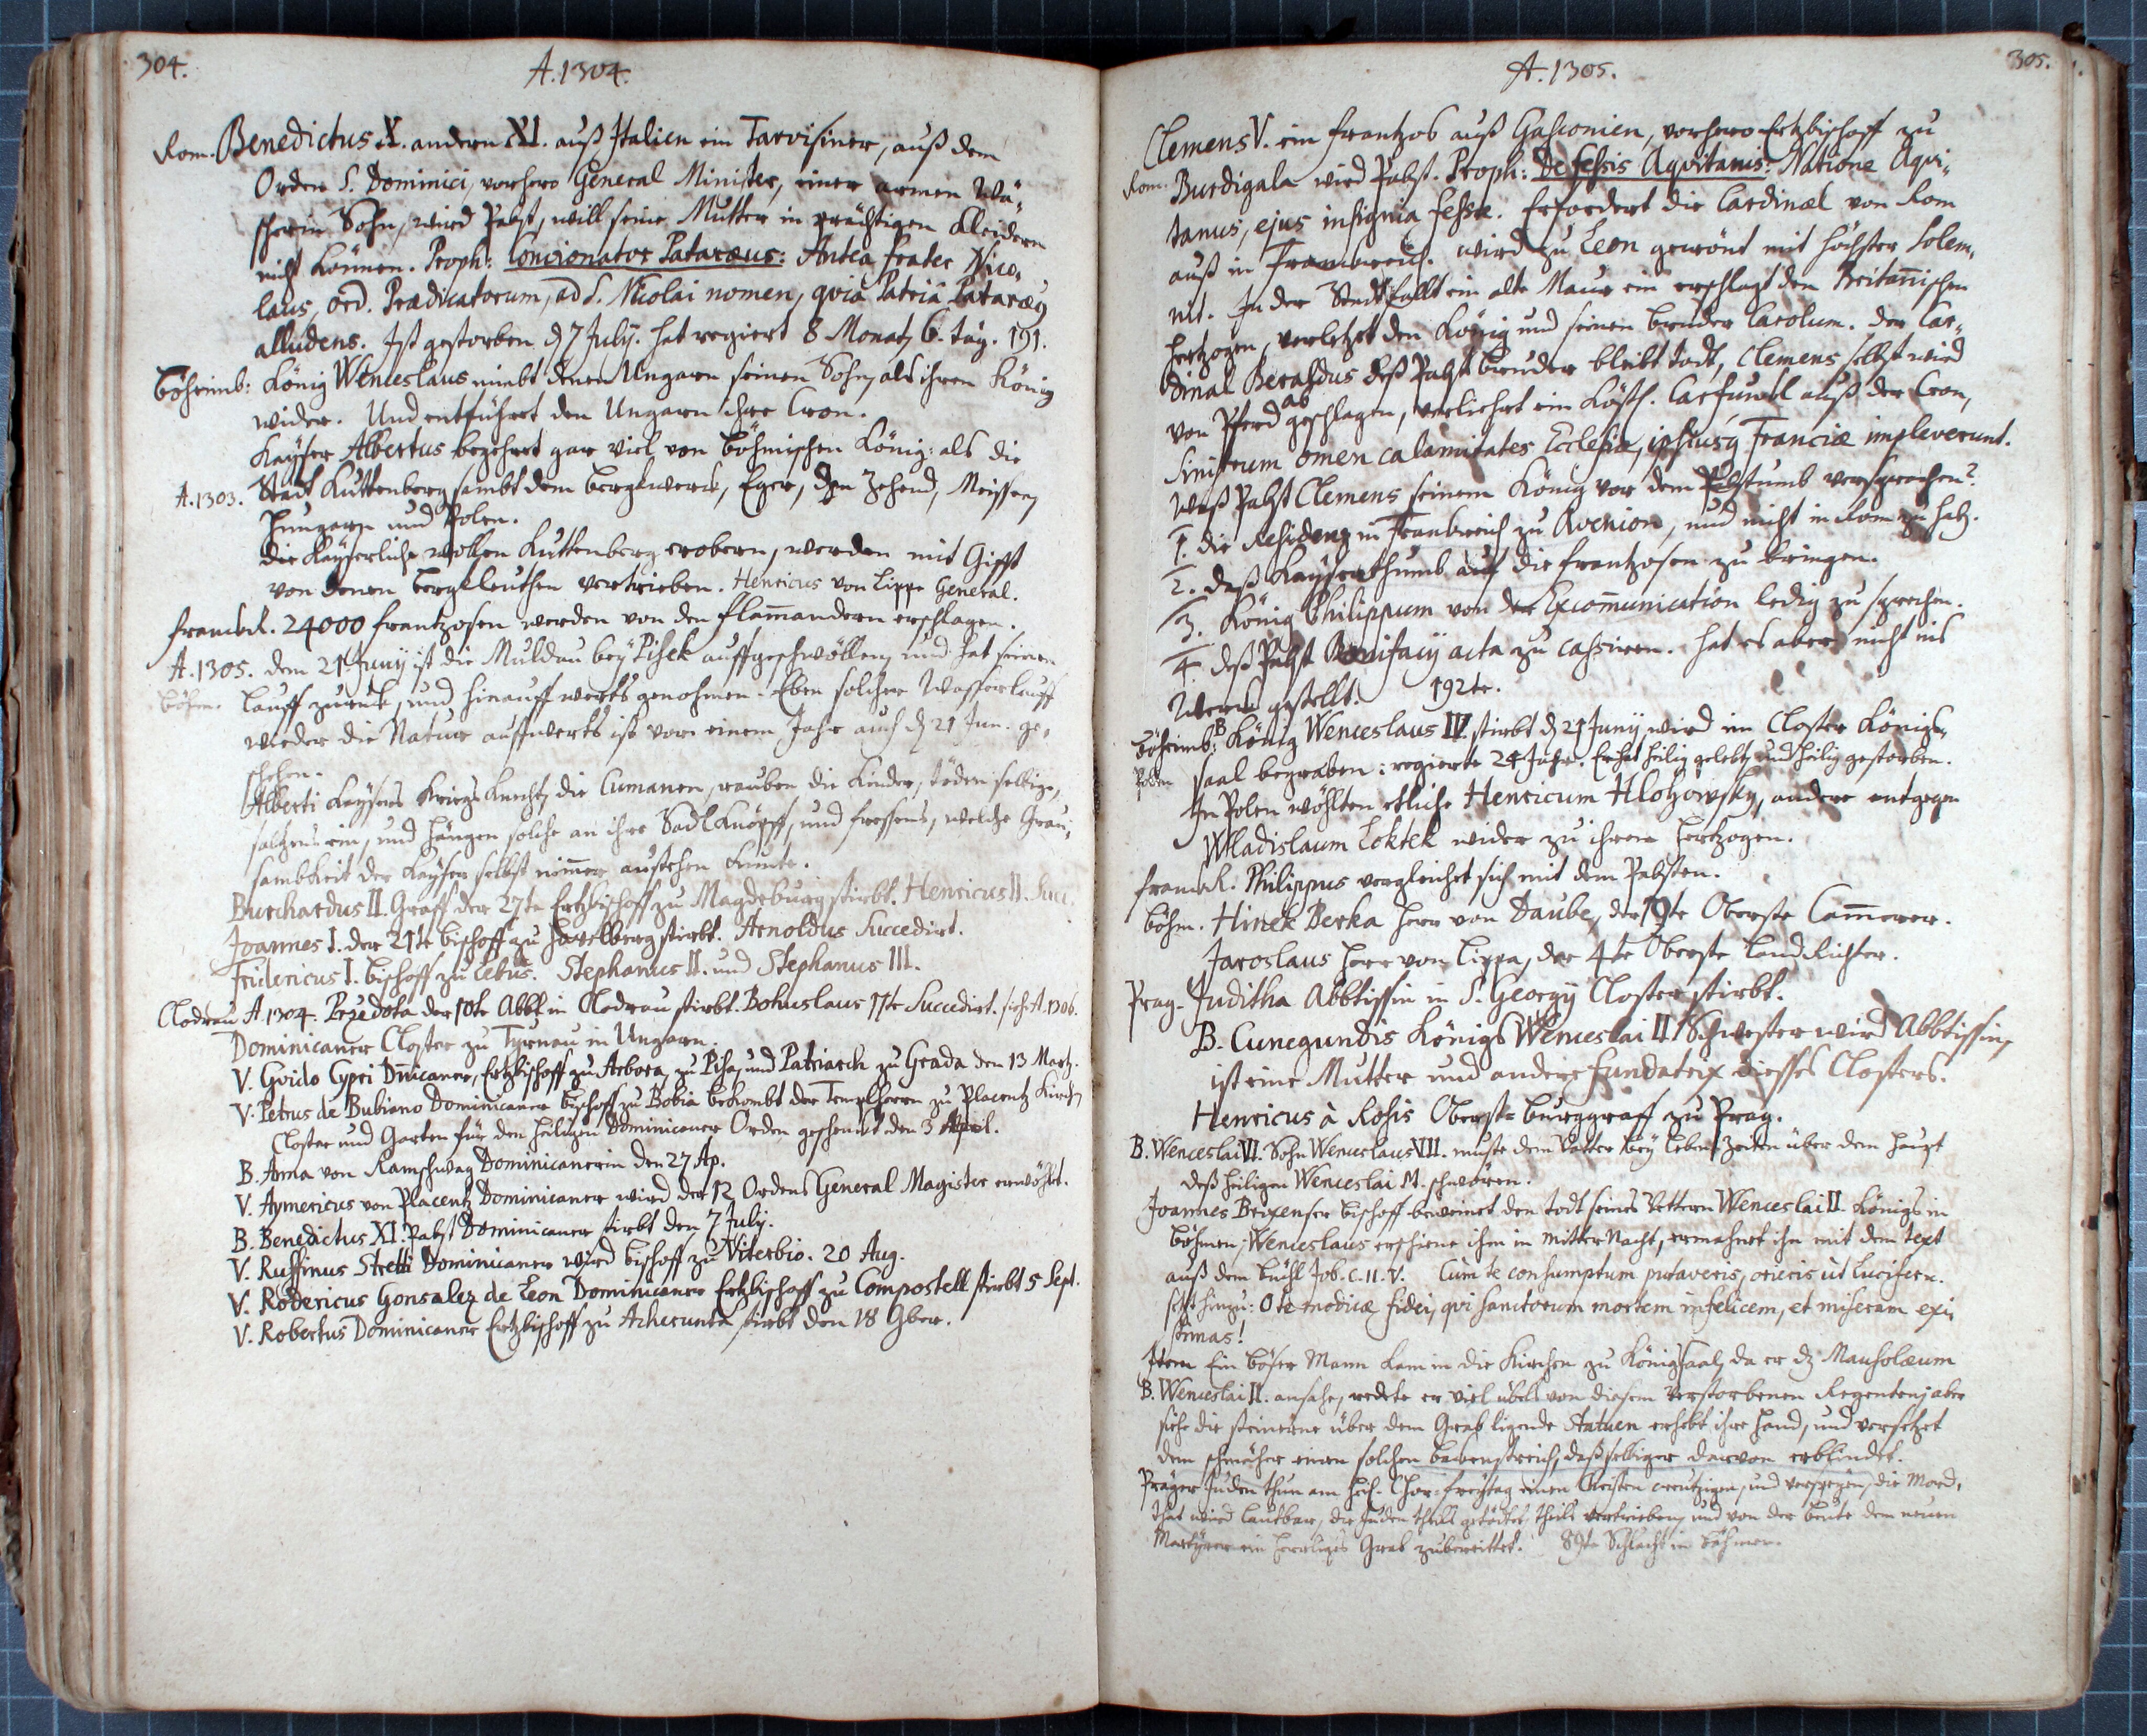 304.
A. 1304.
Rom. Benedictus X. andern XI. auß Italien ein Tarvisiner, auß dem
Orden S. Dominici, vorhero General Minister, einer armen Wä-
scherin Sohn, wird Pabst, will seine Mutter in prächtigen Kleidern
nicht können. Proph: Concionator Pataræus: Antea frater Nico-
laus, ord. Prædicatorum, ad S. Nicolai nomen, qvia Patria Pataræus
alludens. Ist gestorben d 7 July. hat regiert 8 Monat, 6. täg. 191.
Böheimb: König Wenceslaus nimbt denen Ungarn seinen Sohn, als ihren König
wider. Und entführet den Ungarn ihre Cron.
Kayser Albertus begehret gar viel von Böhmischen König: als die
A. 1303. Stadt Kuttenberg sambt dem Bergkwerck, Eger, den Zehend, Meissen,
Hungarn und Polen.
die Kayserliche wollen Kuttenberg erobern, werden mit Gifft
von denen Bergkleuthen vertrieben. Henricus von Lippe General.
Franckr. 24000 Frantzosen werden von den Flammandern erschlagen.
A. 1305. dem 21 Juny ist die Muldau bey Pisek auffgeschwöllen, und hat seinen
Böhm. Lauff zuruck, und hinauffwerts genohmen. Eben solcher Wasserlauff
wieder die Natur auffwerts ist vor einem Jahr auch d 21 Jun. ge-
schehen.
Alberti Kaysers Kriegs Knecht, die Cumanen, rauben die Kinder, töden selbige,
saltzens ein, und hängen solche an ihre Sadlknöpff, und fressens, welche Grau-
sambkeit der Kayser selbst nimmer ausstehen kunte.
Burchardus II. Graff der 27te Ertzbischoff zu Magdeburg stirbt. Henricus II. Succ.
Joannes I. der 21te Bischoff zu Havelberg stirbt. Arnoldus Succedirt.
Fridericus I. Bischoff zu Lebus. Stephanus II. und Stephanus III.
Clodrau A. 1304. Przedota der 10te Abbt in Clodrau stirbt. Bohuslaus 11te Succedirt. sieh A. 1306.
Dominicaner Closter zu Tyrnau in Ungarn.
V. Gvido Cypri Dnicaner, Ertzbischoff zu Arbora, zu Pisa, und Patriarch zu Grada den 13 Martz.
V. Petrus de Bubiano Dominicaner Bischoff zu Bobia bekombt der Templherrn zu Placentz Kirchen
Closter und Garten für den Heiligen Dominicaner Orden geschenckt den 3 April.
B. Anna von Ramschwag Dominicanerin den 27 Ap.
V. Aymericus von Placentz Dominicaner wird der 12 Ordens General Magister erwöhlt.
B. Benedictus XI. Pabst Dominicaner stirbt den 7 July.
V. Ruffinus Stretti Dominicaner wird Bischoff zu Viterbio. 20 Aug.
V. Rodericus Gonsalez de Leon Dominicaner Ertzbischoff zu Compostell stirbt 5 Sept.
V. Robertus Dominicaner Ertzbischoff zu Acherunta stirbt den 18 9ber.
305.
A. 1305.
Clemens V. ein Frantzos auß Gasconien, vorhero Ertzbischoff zu
Rom. Burdigala wird Pabst. Proph: De fessis Aqvitanis: Natione Aqvi-
tanus, ejus insignia fessæ. Erfordert die Cardinæl von Rom
auß in Franckreich. wird zu Leon gecrönt mit höchster Solem-
nit. In der Stadt fallt ein alte Maur ein erschlagt den Britanischen
Hertzogen, verletzet den König und seinen bruder Carolum. der Car-
dinal Beraldus deß Pabst bruder bleibt todt, Clemens selbst wird
von Pferd ab geschlagen, verliehrt ein Köstl. Carfunckl auß der Cron,
Sinistrum omen calamitates Ecclesiæ, ipsiusq Franciæ impleverunt.
Waß Pabst Clemens seinem König vor dem Pabstumb versprochen?
1. die Residentz in Franckreich zu Avenion, und nicht in Rom zu hab.
2. daß Kayserthumb auf die Frantzosen zu bringen.
3. König Philippum von der Excommunication ledig zu sprechen.
4. deß Pabst Bonifacij acta zu cassiren. Hat es aber nicht ins
Werck gestellt. 192te.
Böheimb: B König Wenceslaus IV. stirbt d 21 Juny wird im Closter Königs-
Polen saal begraben: regierte 24 Jahr. Er hat heilig gelebt, und heilig gestorben.
In Polen wöhlten etliche Henricum Hlohowsky, andere entgegen
Wladislaum Loktek wider zu ihren Hertzogen.
Franckr. Philippus vergleichet sich mit dem Pabsten.
Böhm. Hinek Berka Herr von Daube, der 19te Oberste Cammerer.
Jaroslaus Herr von Lippa, der 4te Oberste LandRichter.
Prag. Juditha Abbtissin in S. Georgij Closter stirbt.
B. Cunegundis Königs Wenceslai II. Schwester wird Abbtissin,
ist eine Mutter und andere Fundatrix diesses Closters.
Henricus à Rosis Oberst-burggraff zu Prag.
B. Wenceslai VI. Sohn Wenceslaus VII. muste dem Vatter bey lebens Zeiten über dem Haupt
deß Heiligen Wenceslai M. schwören.
Joannes Brixenser Bischoff beweinet den todt seines Vettern Wenceslai II. Königs in
Böhmen, Wenceslaus erschiene ihm in mitter Nacht, ermahnet ihn mit dem text
auß dem Büchl Job. c. 11. v. Cum te consumptum putaveris, orieris ut Lucifer.
setzt hinzu: O te modicæ fidei, qvi sanctorum mortem infelicem, et miseram exi-
stimas!
Item Ein böser Mann kam in die Kirchen zu Königsaal, da er dz Mausolæum
B. Wenceslai II. ansahe, redete er viel übels von diesem Verstorbenen Regenten, aber
siehe die steinerne über dem Grab ligende Statuen erhebt ihre Hand, und versetzet
dem schmäher einen solchen backenstreich, daß selbiger davon erblindet.
Prager Juden thun am Heil. Char-freytag einen Christen creutzigen, und verspeyen, die Mord-
that wird lautbar, die Juden theils getödtet theils vertrieben, und von der beute dem neuen
Martyrer ein herrliges Grab zubereittet. 89te Schlacht in Böhmen.